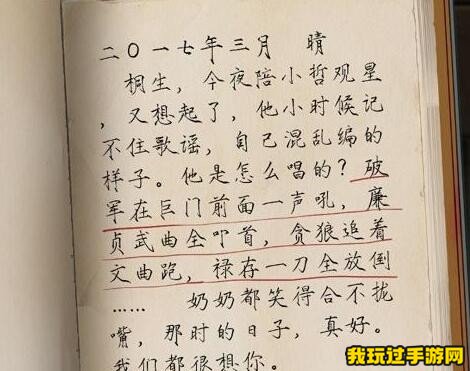 二〇一七年三月 晴
桐生，今夜陪小哲观星
，又想起了，他小时候记
不住歌谣，自己混乱编的
样子。他是怎么唱的？破
军在巨门前面一声吼，廉
贞武曲全叩首，贪狼追着
文曲跑，禄存一刀全放倒
…… 奶奶都笑得合不拢
嘴，那时的日子，真好。
我们都很想你。
我玩过手游网